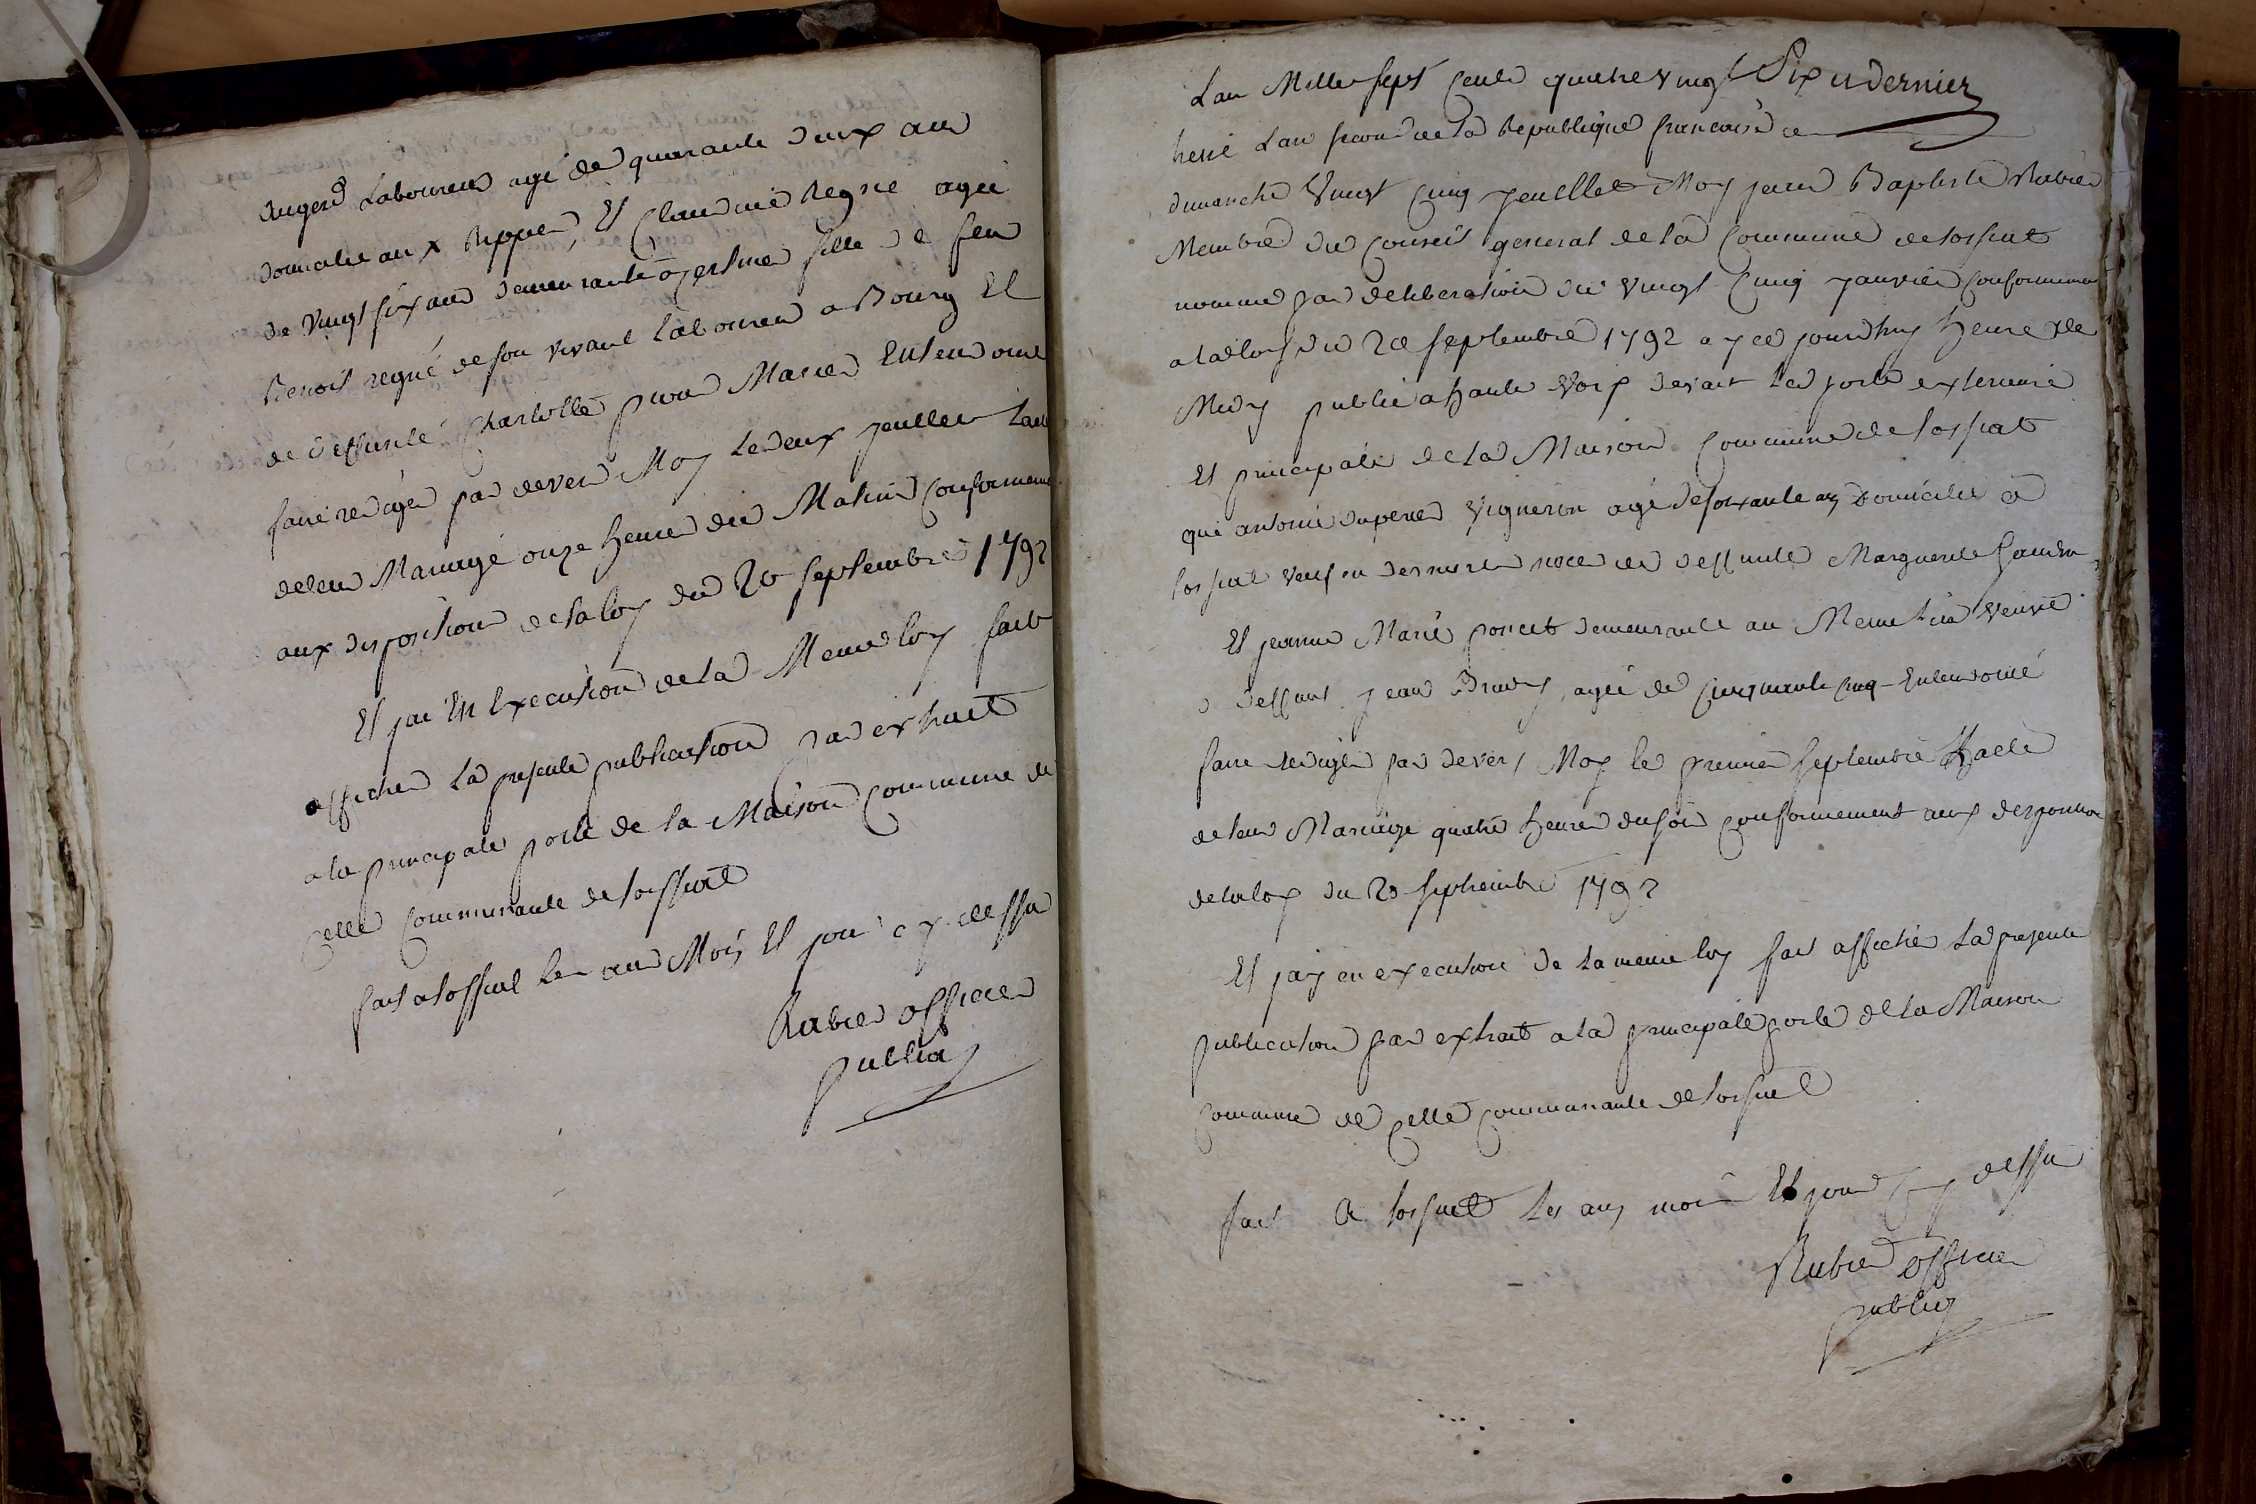 Laboureur agé de quarante deux ans
domicilié aux Rippes, Et Claudine Regne agée
de Vingt six ans demeurante a fille de feu
Benoit regne de son vivant Laboureur a Bourg Et
de deffunte Charlotte Marier Entendent
faire rediger par devers Moy le deux jeuillet Lacte
de leur Mariage onze heures du Matin Conformement
aux dispositions de la loy du 20 Septembre 1792
Et jai En Execution de la Meme loy fait
afficher La presente publication par extrait
a la principale porte de la Maison Commune de
Cette Communauté de fossiat
fait a fossiat les ans Mois Et jour cy dessu
Rabier officier
public
L'an Mille sept Cents quatre vingt Dix et dernier
L'an second de la Republique francoise
dimanche Vingt Cinq jeuillet Moy jean Baptiste Rabier
Membre du Conseil general de la Commune de fossiat
nommé par deliberation du Vingt Cinq janvier Conformement
a la loy du 20 Septembre 1792 ay ce jourdhuy heure de
Midy publié a haute Voix devant la porte exterieure
Et principale de la Maison Commune de fossiat
que antoine duperer Vigneron agé de soixante ans Domicilié a
fossiat veuf en dernieres noces de deffunte Marguerite
Et jeanne Marie poncet demeurante au Meme Lieu Veuve
de deffunt jean agée de Cinquante Cinq Entendent
faire rediger par devers Moy le premier Septembre Lacte
de leur Mariage quatre heures du soir Conformement aux dispositions
de la loy du 20 Septembre 1792
Et jay en execution de la meme loy fait afficher La presente
publication par extrait a la principale porte de la Maison
Commune de Cette Communauté de fossiat
fait A fossiat Les ans mois Et jour Cy dessu
Rabier officier
public